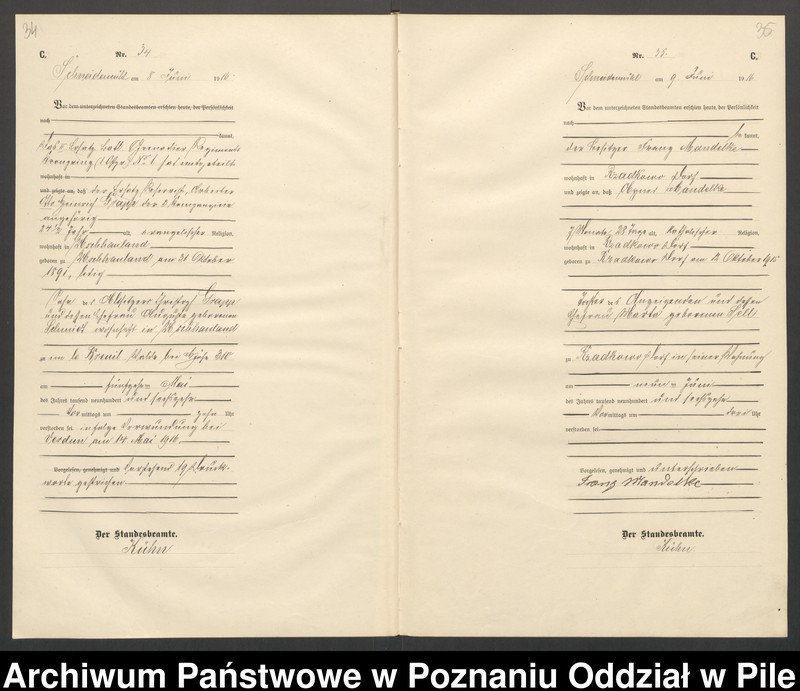 34
C.
Nr. 34
Schneidemühl am 8 Juni 1916.
Vor dem unterzeichneten Standesbeamten erschien heute, der Persönlichkeit
nach
kannt,
Ersatz Batl. Grenadier Regiments
Kronprinz (1 Ostpr.) N. 1 hat mitgeteilt
wohnhaft in
und zeigte an, daß der Ersatz Reservist, Arbeiter
Otto Heinrich Grappe der Kompagnie
angehörig
24 1/2 Jahr alt, evangelischer Religion,
wohnhaft in Uschhauland
geboren zu Uschhauland, am 21 Oktober
1891, ledig
Sohn des Altsitzers Grappe
und dessen Ehefrau Auguste geborenen
Schmidt wohnhaft in Uschhauland
im Walde bei Höhe 310
am fünfzehn Mai
des Jahres tausend neunhundert und sechszehn
Vormittags um zehn Uhr
verstorben sei infolge Verwundung bei
Verdun am 14. Mai 1916
Vorgelesen, genehmigt und Vorstehend 19 Druck-
worte gestrichen
Der Standesbeamte.
Kühn
35
Nr. 35.
C.
Schneidemühl am 9 Juni 1916
Vor dem unterzeichneten Standesbeamten erschien heute, der Persönlichkeit
nach
be kannt,
der Besitzer Franz Mandelke
wohnhaft in Rzadkowo Dorf
und zeigte an, daß Agnes Mandelke
7 Monate, 28 Tage alt, katholischer Religion,
wohnhaft in Rzadkowo Dorf
geboren zu Rzadkowo Dorf am 12 Oktober 1915
Tochter des Anzeigenden und dessen
Ehefrau Marta geborenen
zu Rzadkowo Dorf in seiner Wohnung
am neun Juni
des Jahres tausend neunhundert und sechszehn
Vormittags um drei Uhr
verstorben sei
Vorgelesen, genehmigt und unterschrieben
Franz Mandelke
Der Standesbeamte.
Kühn
Archiwum Państwowe w Poznaniu Oddział w Pile